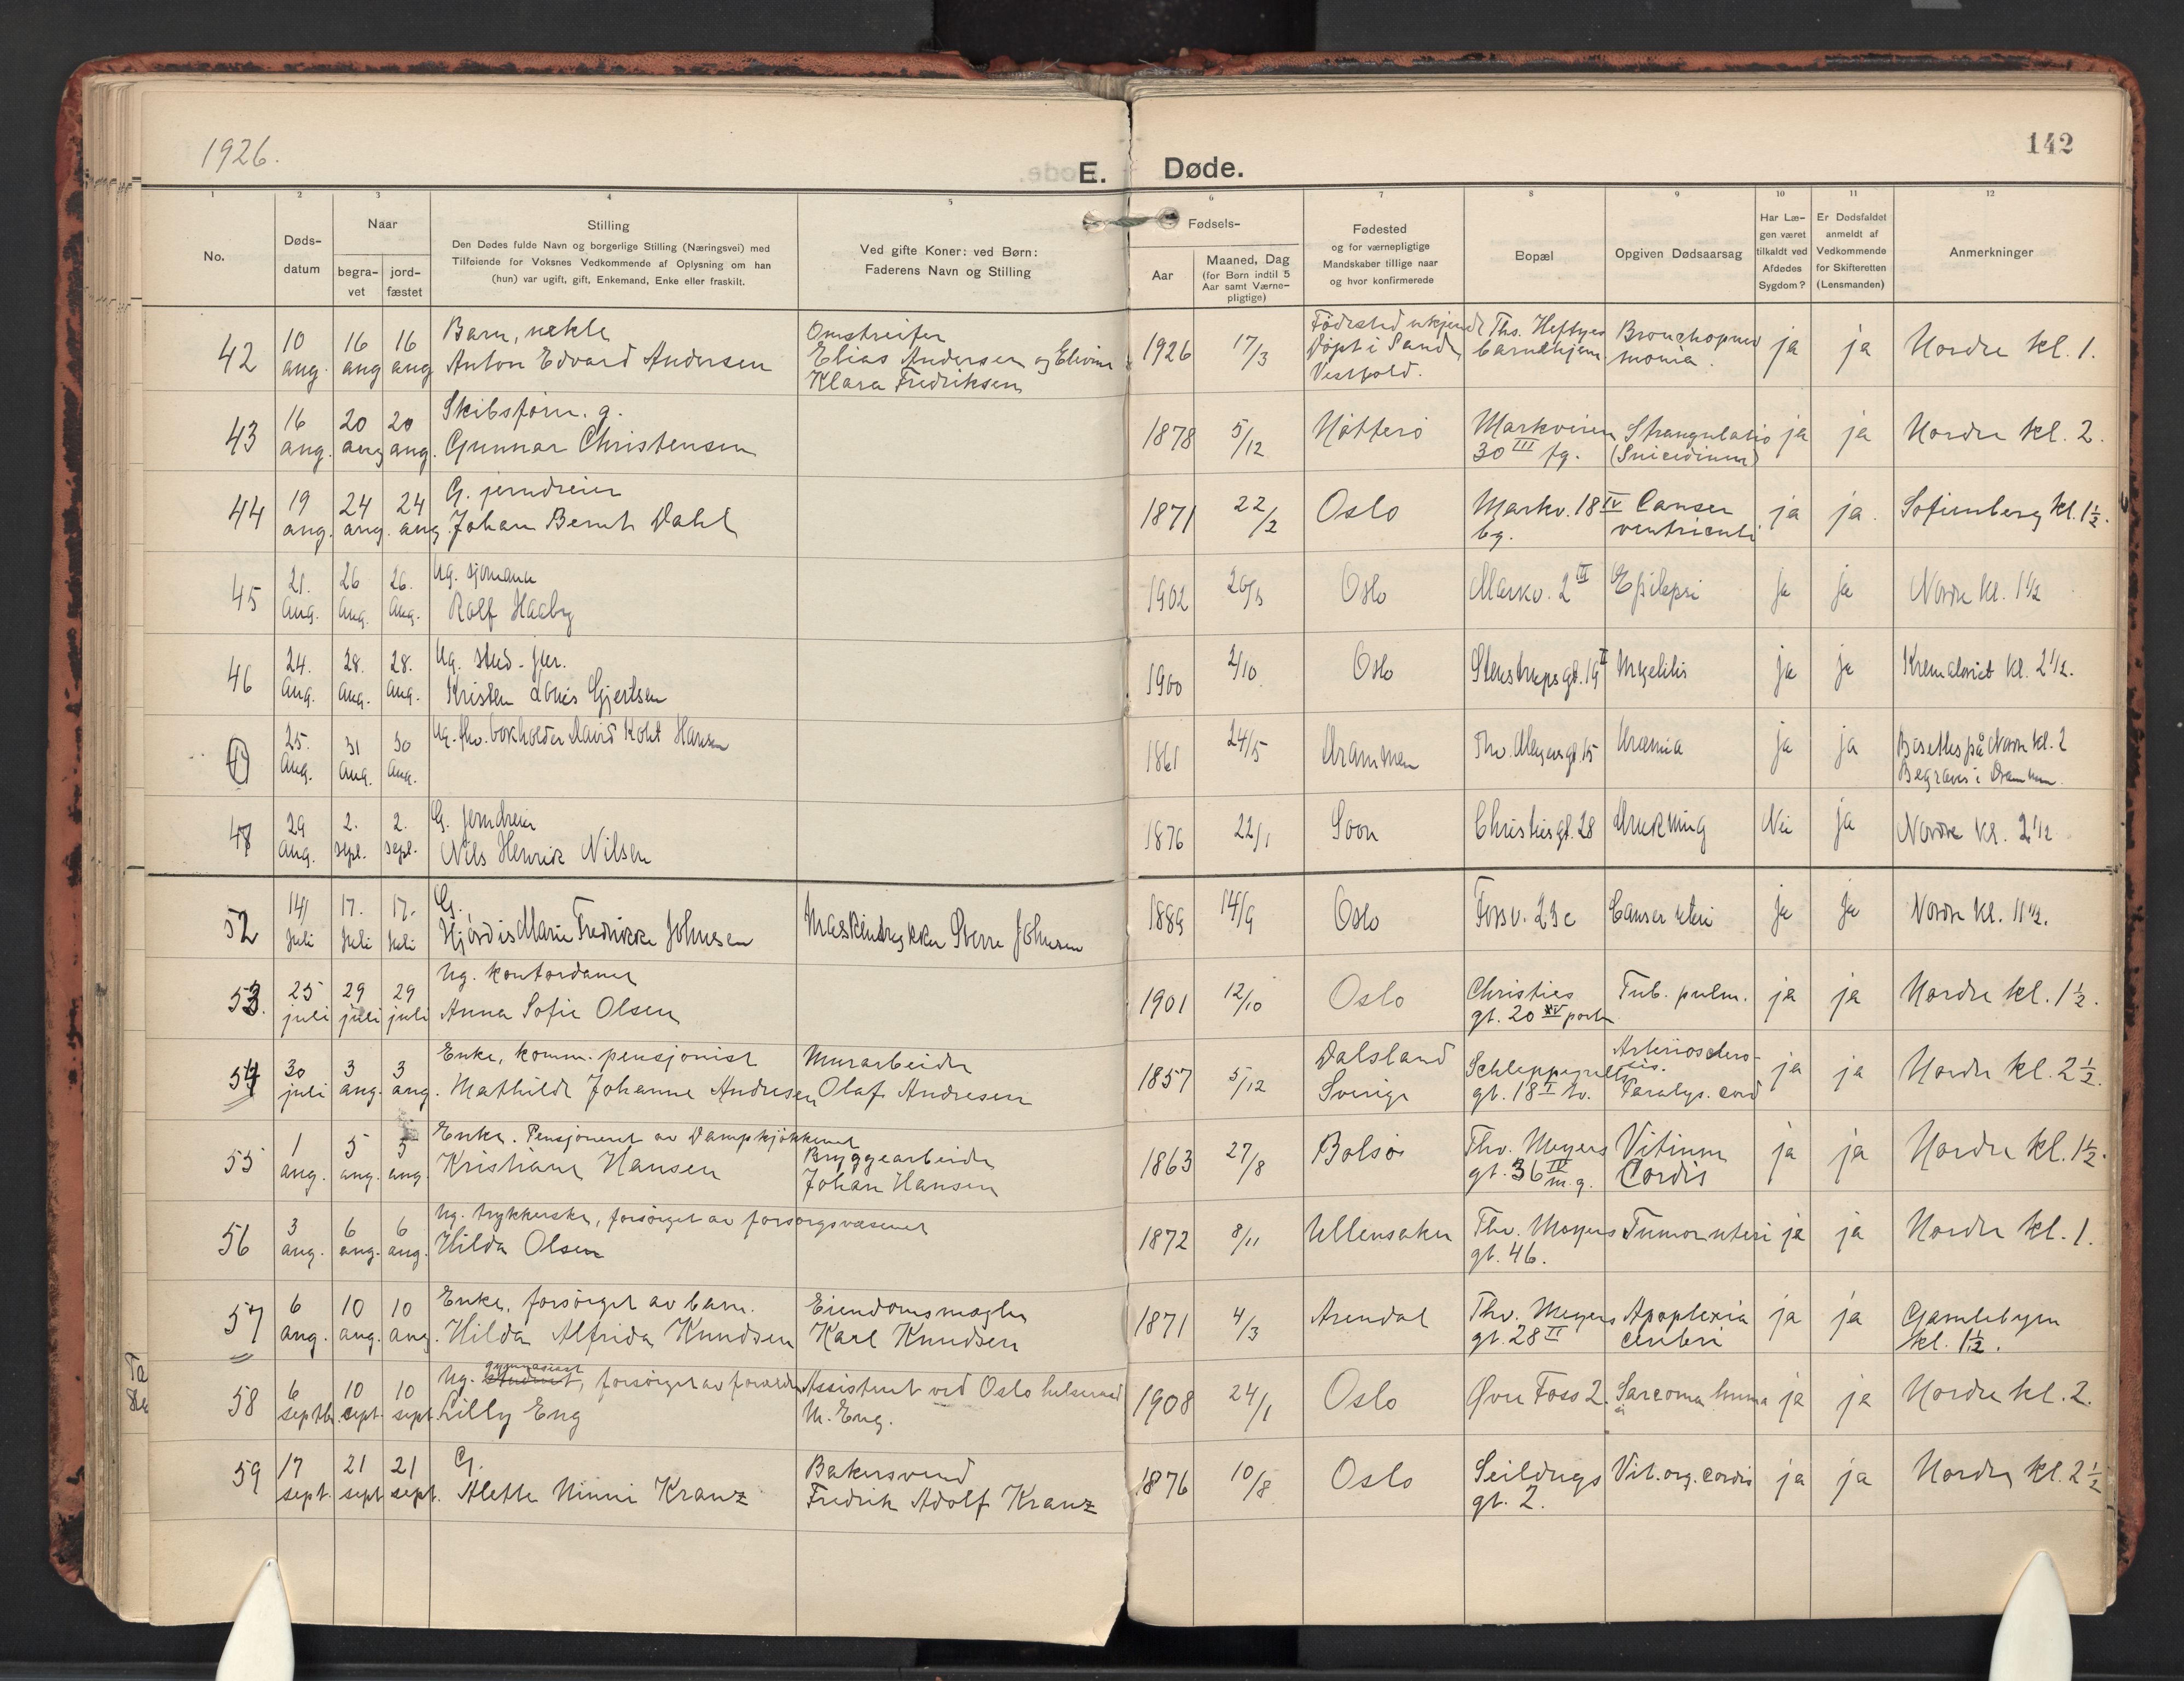 1926.
142
E. Døde.
1 2 3 4 5 6 7 8 9 10 11 12
No.
Døds-
datum
Naar
begra-
vet
jord-
fæstet
Stilling
Den Dødes fulde Navn og borgerlige Stilling (Næringsvei) med
Tilføiende for Voksnes Vedkommende af Oplysning om han
(hun) var ugift, gift, Enkemand, Enke eller fraskilt.
Ved gifte Koner: ved Børn:
Faderens Navn og Stilling
Fødsels-
Aar
Maaned, Dag
(for Børn indtil 5
Aar samt Værne-
pligtige)
Fødested
og for værnepligtige
Mandskaber tillige naar
og hvor konfirmerede
Bopæl
Opgiven Dødsaarsag
Har Læ-
gen været
tilkaldt ved
Afdødes
Sygdom?
Er Dødsfaldet
anmeldt af
Vedkommende
for Skifteretten
(Lensmanden)
Anmerkninger
42 10 16 16 Barn, uekte Omstreifer Födested ukjendt Ths. Heftyes Bronchopneu
aug. aug aug Anton Edvard Andersen Elias Andersen og Elivine 1926 17/3 Döpt i Sande barnehjem monia. ja ja Nordre kl. 1.
Klara Fredriksen Vestfold.
43 16 20 20 Skibsförer. g.
aug. aug aug. Gunnar Christensen 1878 5/12 Nötterö Markveien Strangulatio ja ja Nordre kl. 2.
30 III fg. (Suicidium)
44 19 24 24 G. jerndreier
aug. aug. aug. Johan Bernt Dahl 1871 22/2 Oslo Markv. 18 IV Cancer ja ja. Sofienberg kl. 1½.
bg. ventriculi.
45 21. 26 26. Ug. sjömann
Aug. Aug. Aug. Rolf Haaby 1902 Oslo Markv. 2 III Epilepsi ja ja Nordre kl. 1½
46 24. 28. 28. Ug. stud. jur.
Aug. Aug. Aug. Kristen Louis Gjertsen 1900 2/10 Oslo Stenstrupsgt. 19 II Myelitis ja ja Krematoriet kl. 2½.
25. 31 30 Ug. fhv. bokholder David Koht Hansen
Aug. Aug. Aug. 1861 24/5 Drammen Thv. Meyersgt. 15 Uræmia ja ja Bisettes på Nordre kl. 2
Begraves i Drammen.
48 29 2. 2. G. jerndreier
Aug. sept. sept. Nils Henrik Nilsen 1876 22/1 Soon Christiesgt. 28 Drukning Nei ja Nordre kl. 2½
52 14/ 17. 17. G.
Juli Juli Juli Hjördis Marie Fredrikke Johnsen Maskintrykker Sverre Johnsen 1889 14/9 Oslo Fossv. 23c Cancer uteri ja ja Nordre kl. 11½.
53. 25 29 29 Ug. kontordame
juli juli juli Anna Sofie Olsen 1901 12/10 Oslo Christies Tub. pulm. ja ja Nordre kl. 1½.
gt. 20 IV porten
54 30 3 3 Enke, komm. pensjonist Murarbeider Dalsland Schleppegrells Arteriosclero-
juli aug. aug. Mathilde Johanne Andresen Olaf Andresen 1857 5/12 Sverige gt. 18 I tv. sis. Paralys. cord ja ja Nordre kl. 2½.
55 1 5 5 Enke. Pensjoneret av Dampkjökkenet Bryggearbeider
aug. aug. aug. Kristiane Hansen Johan Hansen 1863 27/8 Bolsö Thv. Meyers Vitium ja ja Nordre kl. 1½.
gt. 36 IV m.g. Cordis
56 3 6 6 Ug. trykkerske, forsörget av forsorgsvæsenet
aug. aug. aug. Hilda Olsen 1872 8/11 Ullensaker Thv. Meyers Tumor uteri ja ja Nordre kl. 1.
gt. 46.
57 6 10 10 Enke, forsörget av barn. Eiendomsmægler
aug. aug. aug. Hilda Alfrida Knudsen Karl Knudsen 1871 4/3 Arendal Thv. Meyers Apoplexia ja ja Gamlebyen
gt. 28 II cerebri kl. 1½.
58 6 10 10 Ug. gymnasiast, forsörget av foreldre Assistent ved Oslo helseraad
septbr. sept. sept. Lilly Eng M. Eng. 1908 24/1 Oslo Øvre Foss 2. Sarcoma humeri ja ja Nordre kl. 2.
59 17 21 21 G. Bakersvend
sept. sept sept. Alette Ninni Kranz Fredrik Adolf Kranz 1876 10/8 Oslo Seildugs Vit. org. cordis ja ja Nordre kl. 2½
gt. 2.